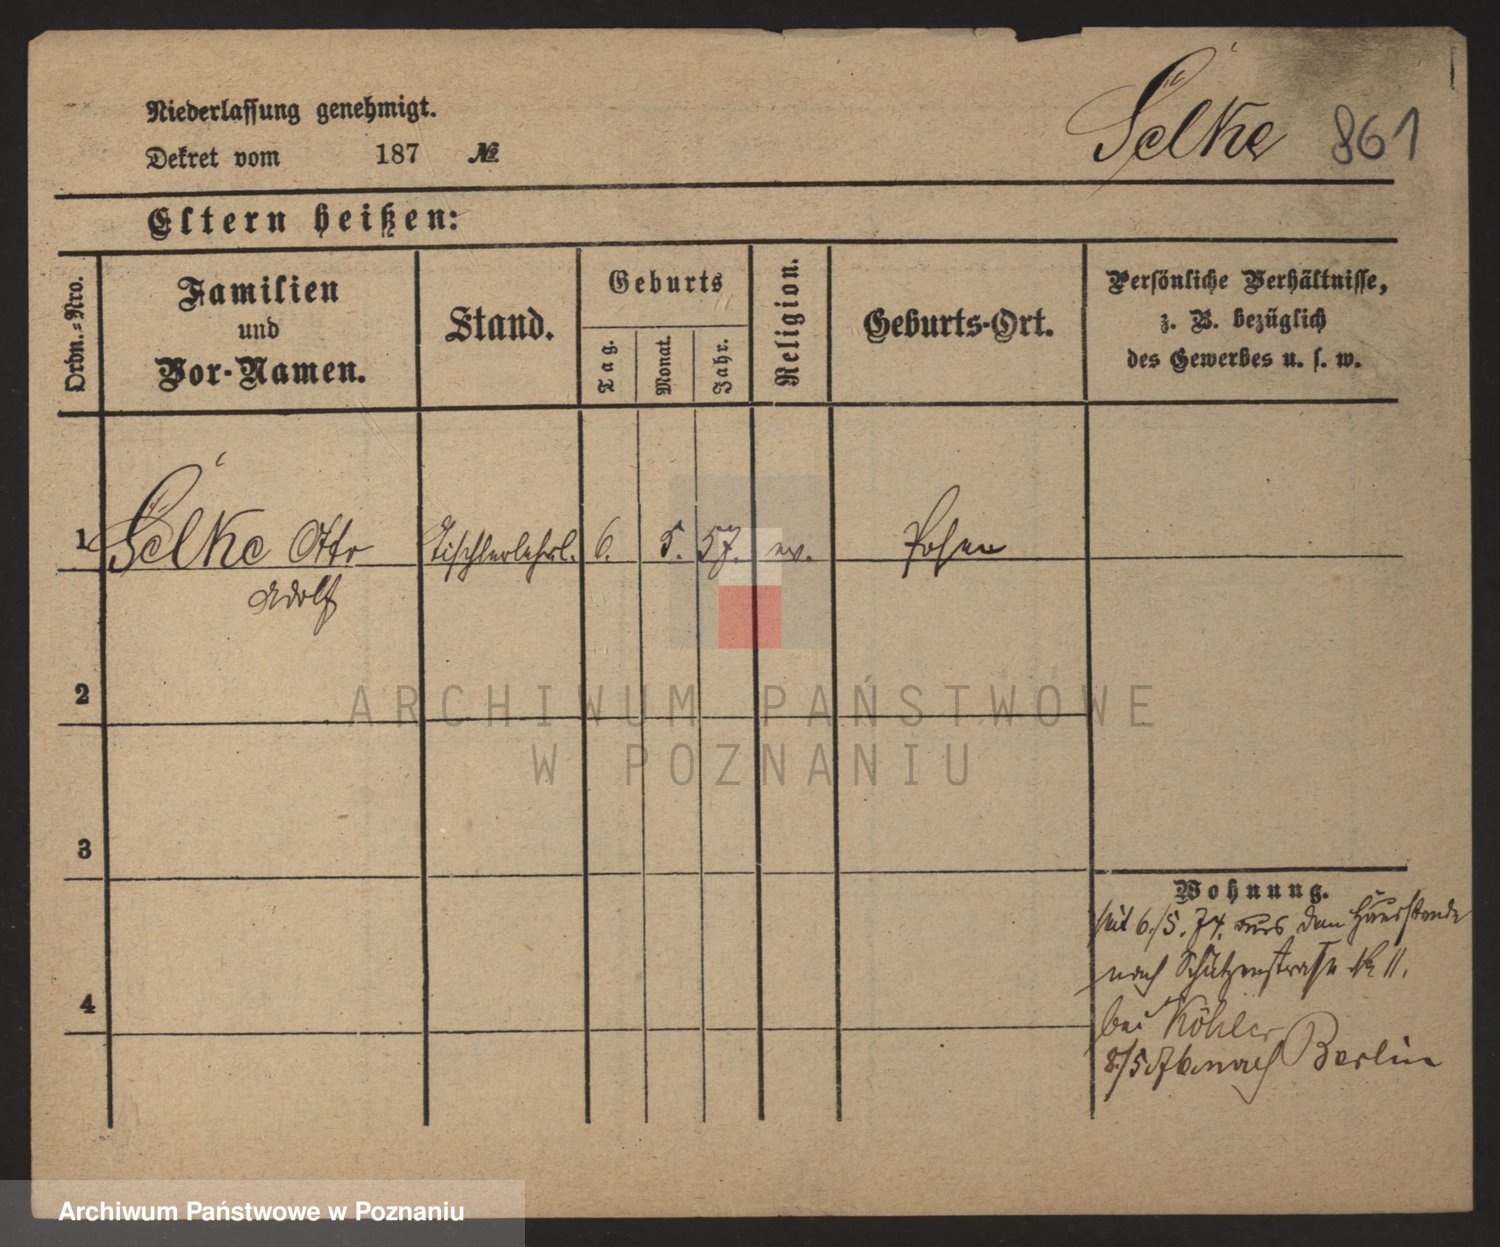 Niederlassung genehmigt.
Dekret vom 187 №
Gelke 861
Eltern heißen:
Ordn.=Nro.
Familien
und
Vor-Namen.
Stand.
Geburts
Tag.
Monat.
Jahr.
Religion.
Geburts-Ort.
Persönliche Verhältnisse,
z. B. bezüglich
des Gewerbes u. s. w.
1 Gelke Otto Tischlerlehrl. 6. 5. 57. ev. Posen
Adolf
2
3
4
Wohnung.
seit 6/5. 74. aus dem Hausstande
nach Schützenstraße № 11.
bei Köhler
8/5 76 nach Berlin
ARCHIWUM PAŃSTWOWE
W POZNANIU
Archiwum Państwowe w Poznaniu